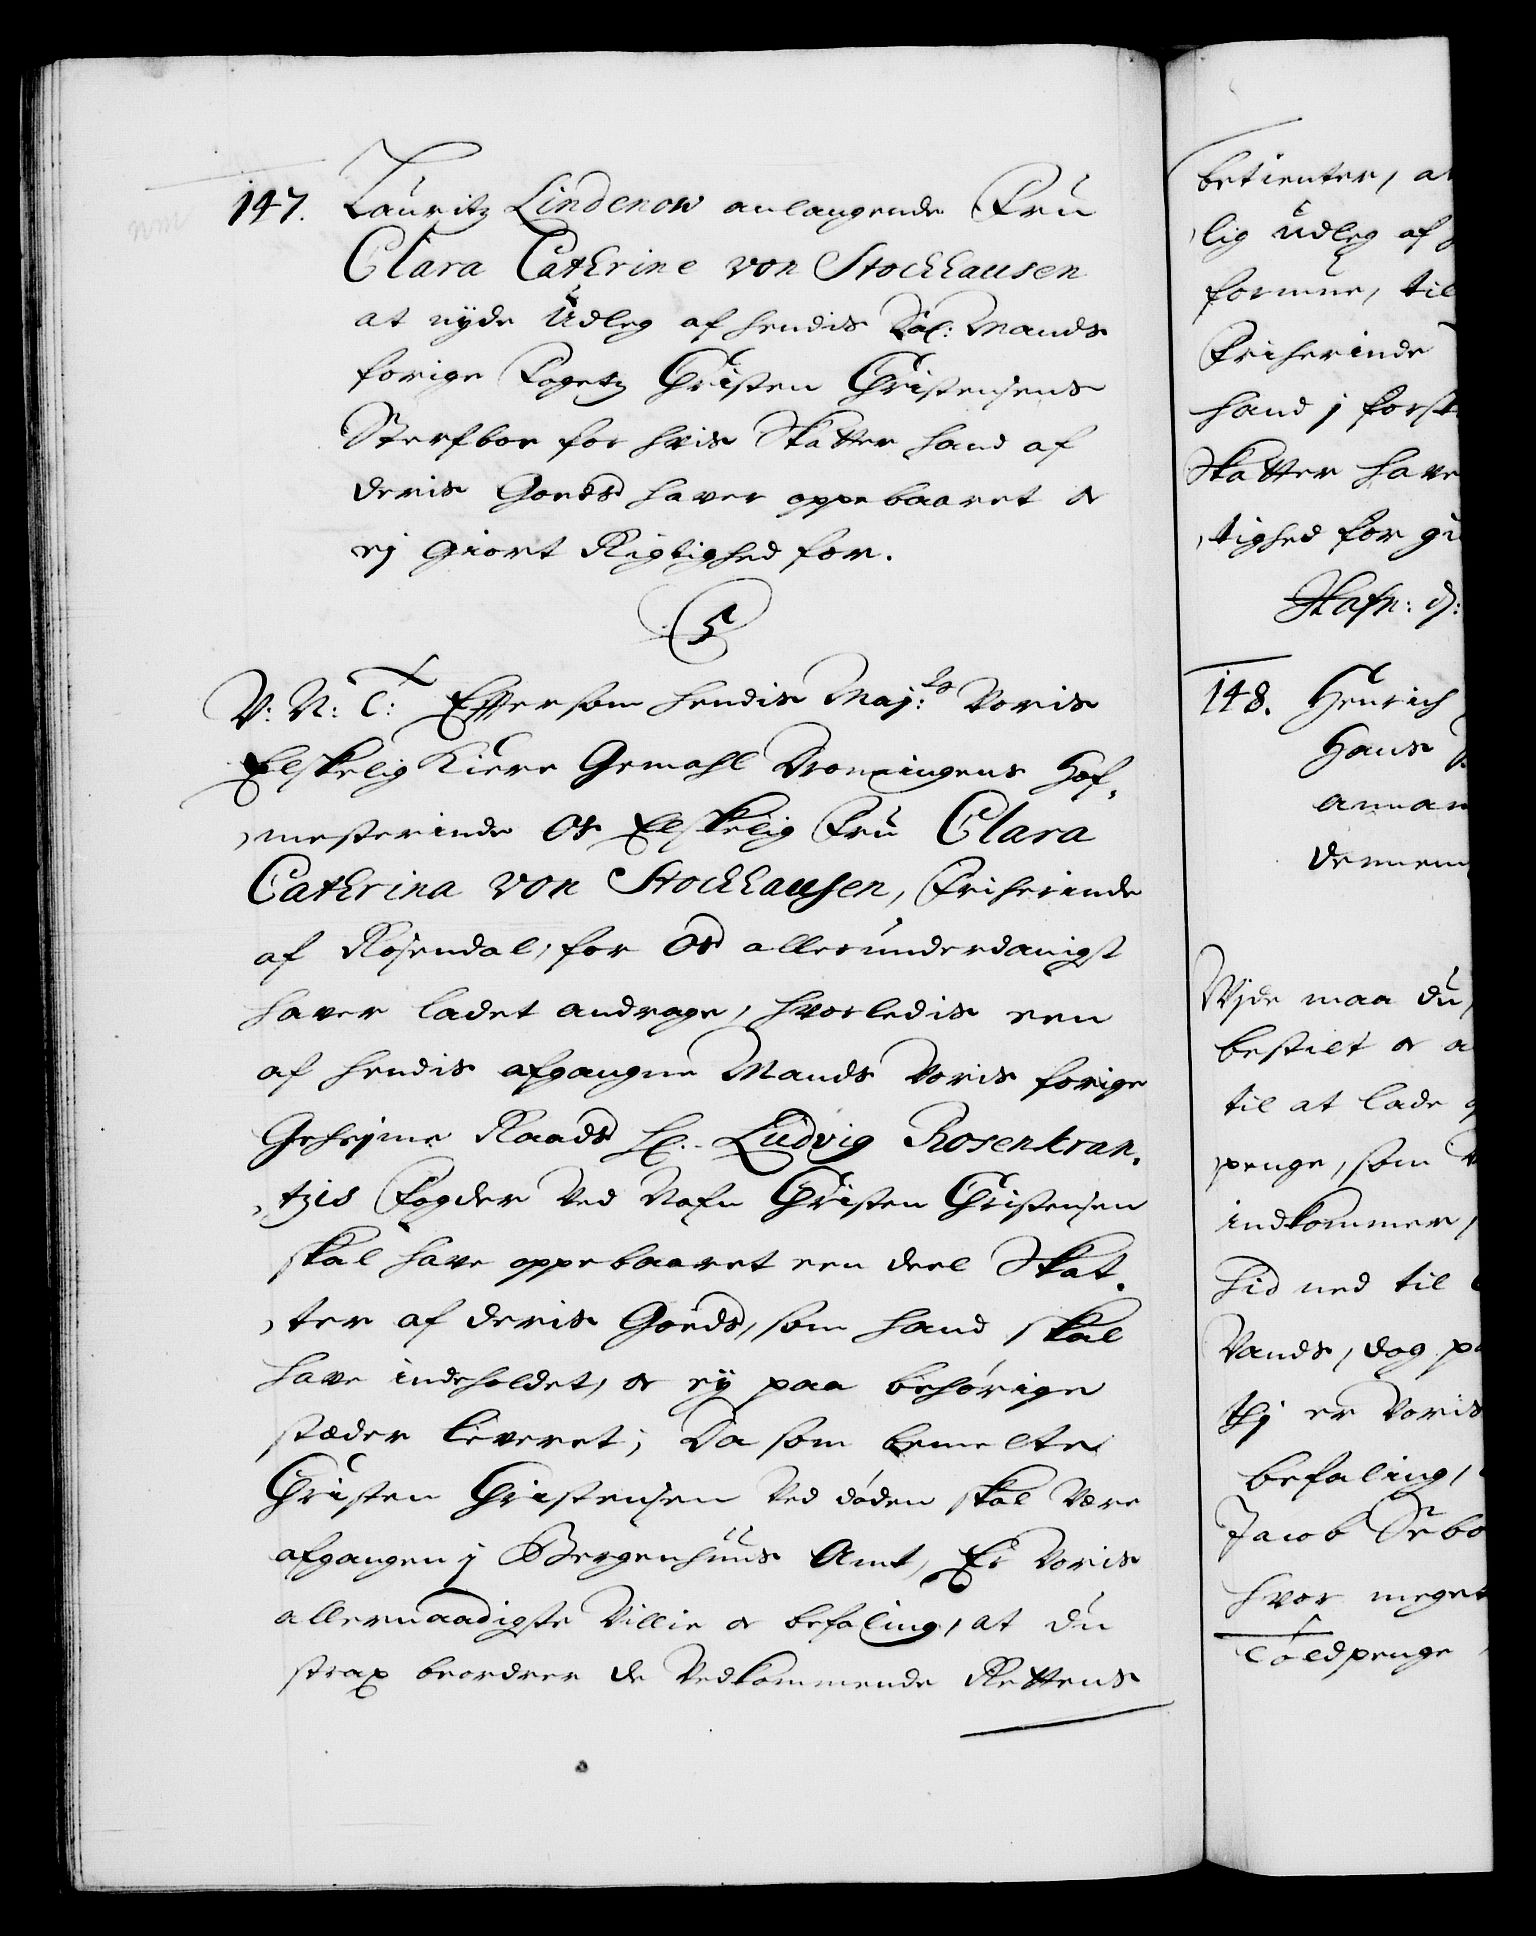 147. Lauritz Lindenow anlangende Fru
Clara Cathrine von Stockhausen
at nyde Udleg af hendis Sal: Mands
forige Fogetz Christen Christensens
Sterfboe for hvis Skatter hand af
deris Goeds haver oppebaaret &
ej giort Rigtighed for.
C5
V: N: C: Eftersom hendis Maj:ts Voris
Elskelig Kiere Gemahl Dronningens Hof,
,mesterinde Os Elskelig Fru Clara
Cathrina von Stockhausen, Friherinde
af Rosendal, for Os allerunderdanigst
haver ladet andrage, hvorledis een
af hendis afgangne Mands Voris forige
Geheyme Raads Sl. Ludvig Rosenkran,
,tzis Fogder ved Nafn Christen Christensen
skal have oppebaaret een deel Skat,
,ter af deris Goeds, som hand skal
have indeholdet, & ey paa behørige
stæder leveret; Da som bemelte
Christen Christensen ved døden skal være
afgangen j Bergenhuus Amt, Er Voris
allernaadigste Villie & befaling, at du
strax beordrer de Vedkommende Rettens
betienter, at
,lig Udleg af
formue, til
Friherinde
hand j forst
Skatter have
,tighed for gi
Hafn: d:
148. Henrich
Hans
annan
dennem
Vijde maa du,
bestilt & a
til at lade
penge, som V
indkommer,
Tid ned til
Vands, dog pa
thj er Voris
befaling,
Jacob Sebo
hvor meget
Toldpenge